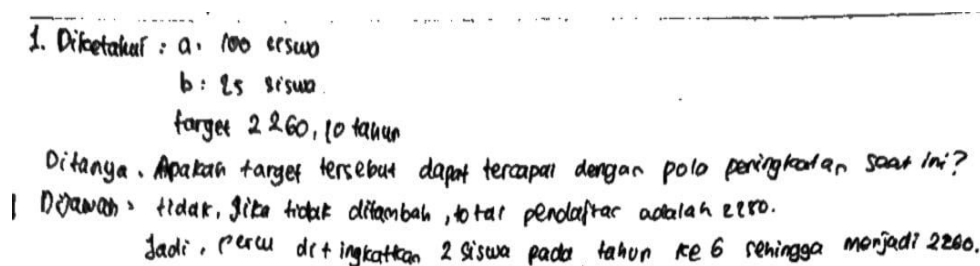 1. Diketahui : a. 100 siswa
b : 25 siswa
target 2260, 10 tahun
Ditanya. Apakah target tersebut dapat tercapai dengan pola peningkatan saat ini?
Dijawab : tidak, jika tidak ditambah, total pendaftar adalah
Jadi, perlu ditingkatkan 2 siswa pada tahun ke 6 sehingga menjadi 2260.